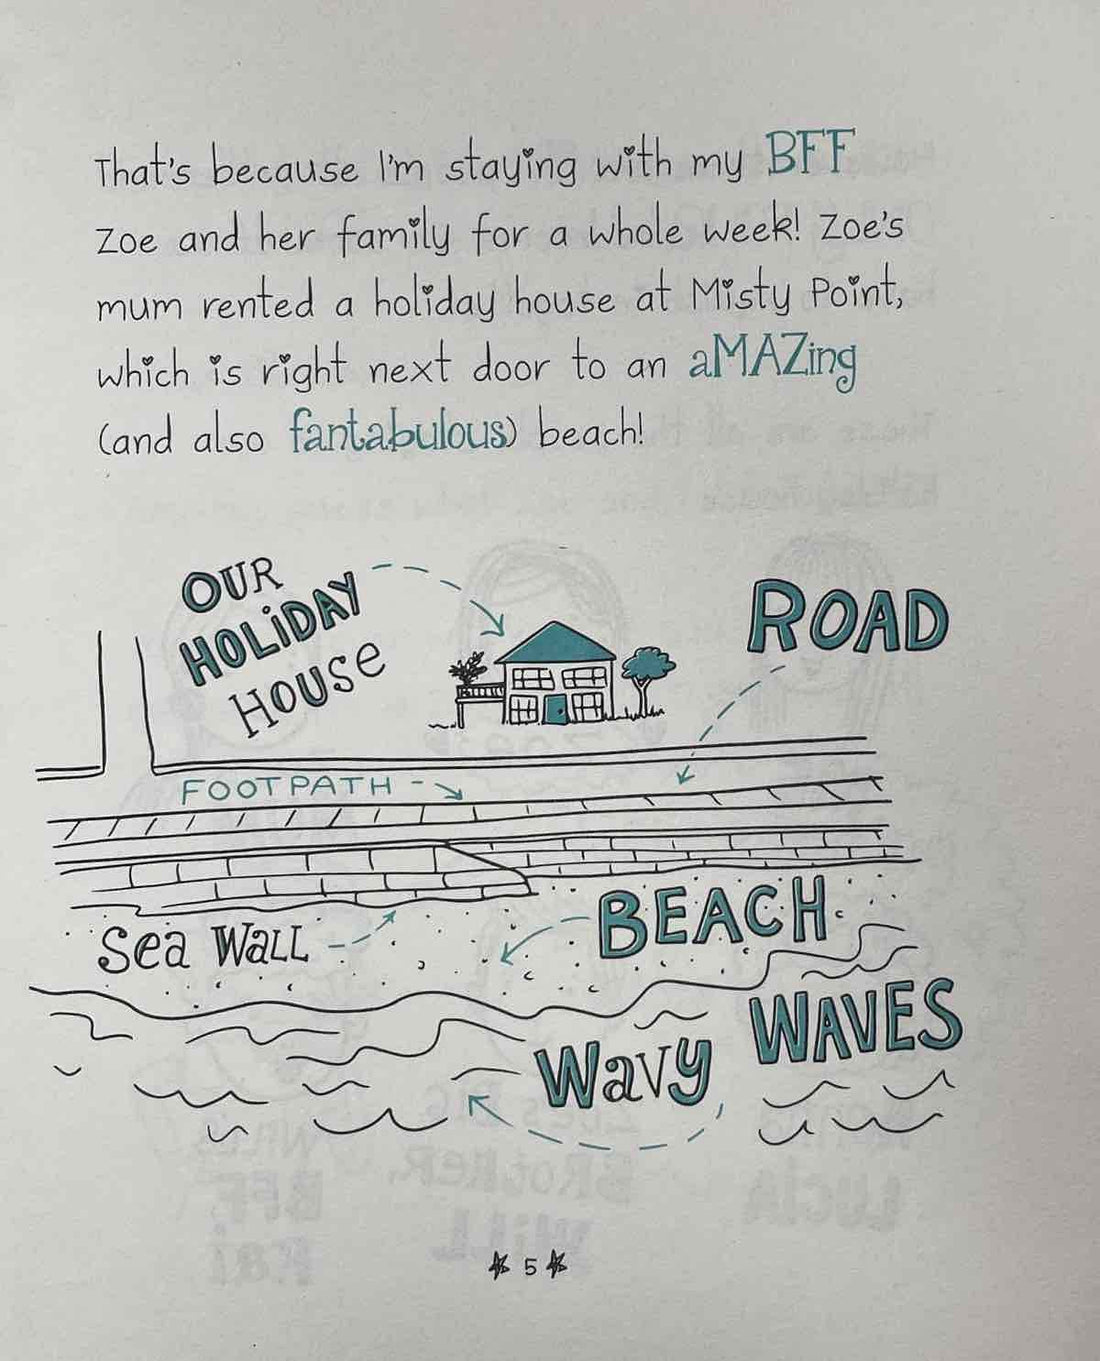 That's because I'm staying with my BFF
Zoe and her family for a whole week! Zoe's
mum rented a holiday house at Misty Point,
which is right next door to an aMAZing
(and also fantabulous) beach!
OUR
HOLiDAY
HOUSE
ROAD
FOOTPATH
BEACH
Sea WaLL
WAVES
Wavy
5